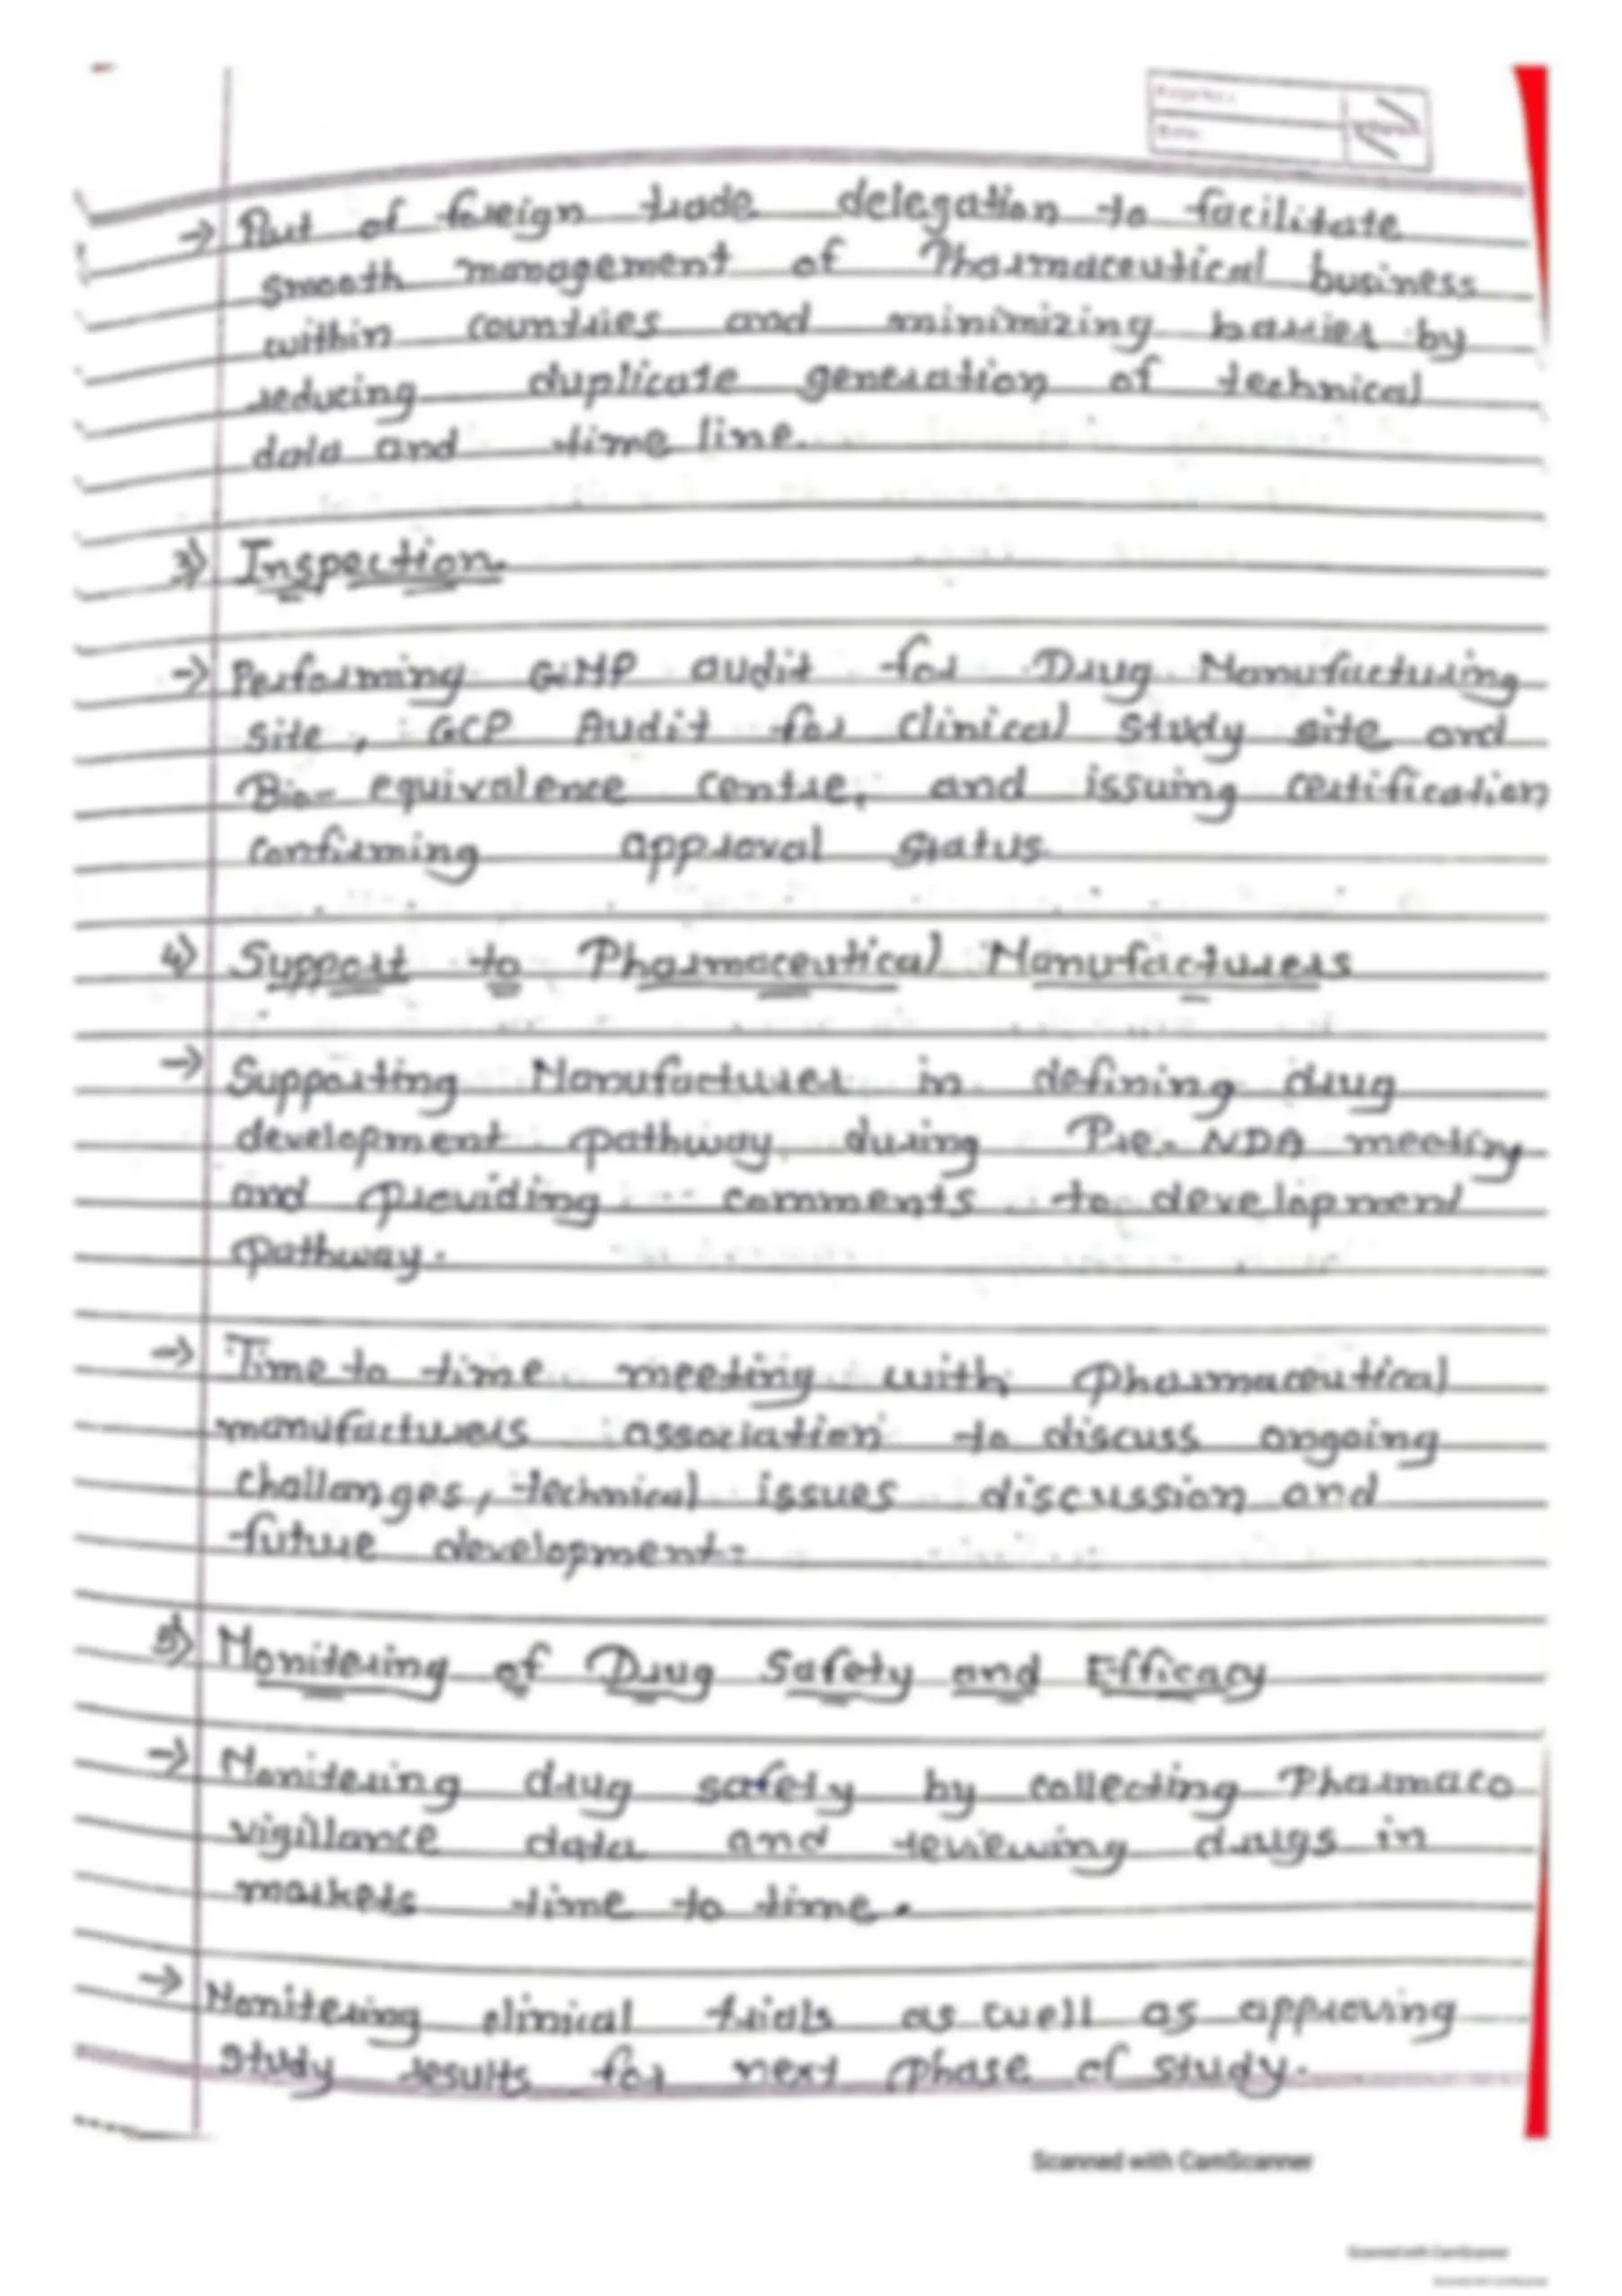 → Part of foreign trade delegation to facilitate
smooth management of Pharmaceutical business
within countries and minimizing barrier by
reducing duplicate generation of technical
data and time line.
3) Inspection.
→ Performing GMP audit for Drug Manufacturing
site, GCP Audit for Clinical study site and
Bio-equivalence centre, and issuing certification
confirming approval status.
4) Support to Pharmaceutical Manufacturers
→ Supporting Manufacturer in defining drug
development pathway during Pre-NDA meeting
and providing comments to development
pathway.
→ Time to time meeting with pharmaceutical
manufacturers association to discuss ongoing
challanges, technical issues discussion and
future development.
5) Monitering of Drug Safety and Efficacy
→ Monitering drug safety by collecting Pharmaco
vigillance data and reviewing drugs in
markets time to time.
→ Monitering clinical trials as well as approving
study results for next phase of study.
Scanned with CamScanner
Scanned with CamScanner
Scanned with CamScanner